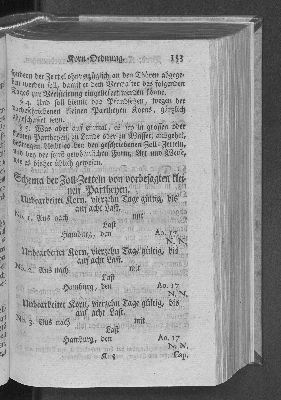 Korn-Ordnung. 153
sondern der Zettel ohnverzüglich an den Thören abgege-
ben werden soll, damit er dem Verwalter des folgenden
Tages zur Versicherung eingeliefert werden könne.
§. 4. Und soll hiemit das
beschriebenen kleinen Partheyen Korns, gänzlich
abgeschaffet seyn.
§. 5. Was aber auf einmal, es sey in großen oder
kleinen Partheyen, zu Lande oder zu Wasser, ausgehet,
deswegen bleibet es bey den geschriebenen Zoll-Zetteln,
nach der bis jetzt gewöhnlichen Form, Art und Weise,
wie es bisher üblich gewesen.
Schema der Zoll-Zetteln von vorbesagten klei-
nen Partheyen.
Unbearbeitet Korn, vierzehn Tage gültig, bis
auf acht Last.
No. 1. Aus nach mit
Last
Hamburg, den Ao. 17
N. N.
Unbearbeitet Korn, vierzehn Tage gültig, bis
auf acht Last.
No. 2. Aus nach mit
Last
Hamburg, den Ao. 17
N. N.
Unbearbeitet Korn, vierzehn Tage gültig, bis
auf acht Last.
No. 3. Aus nach mit
Last
Hamburg, den Ao. 17
N. N.
K 5 Cap.